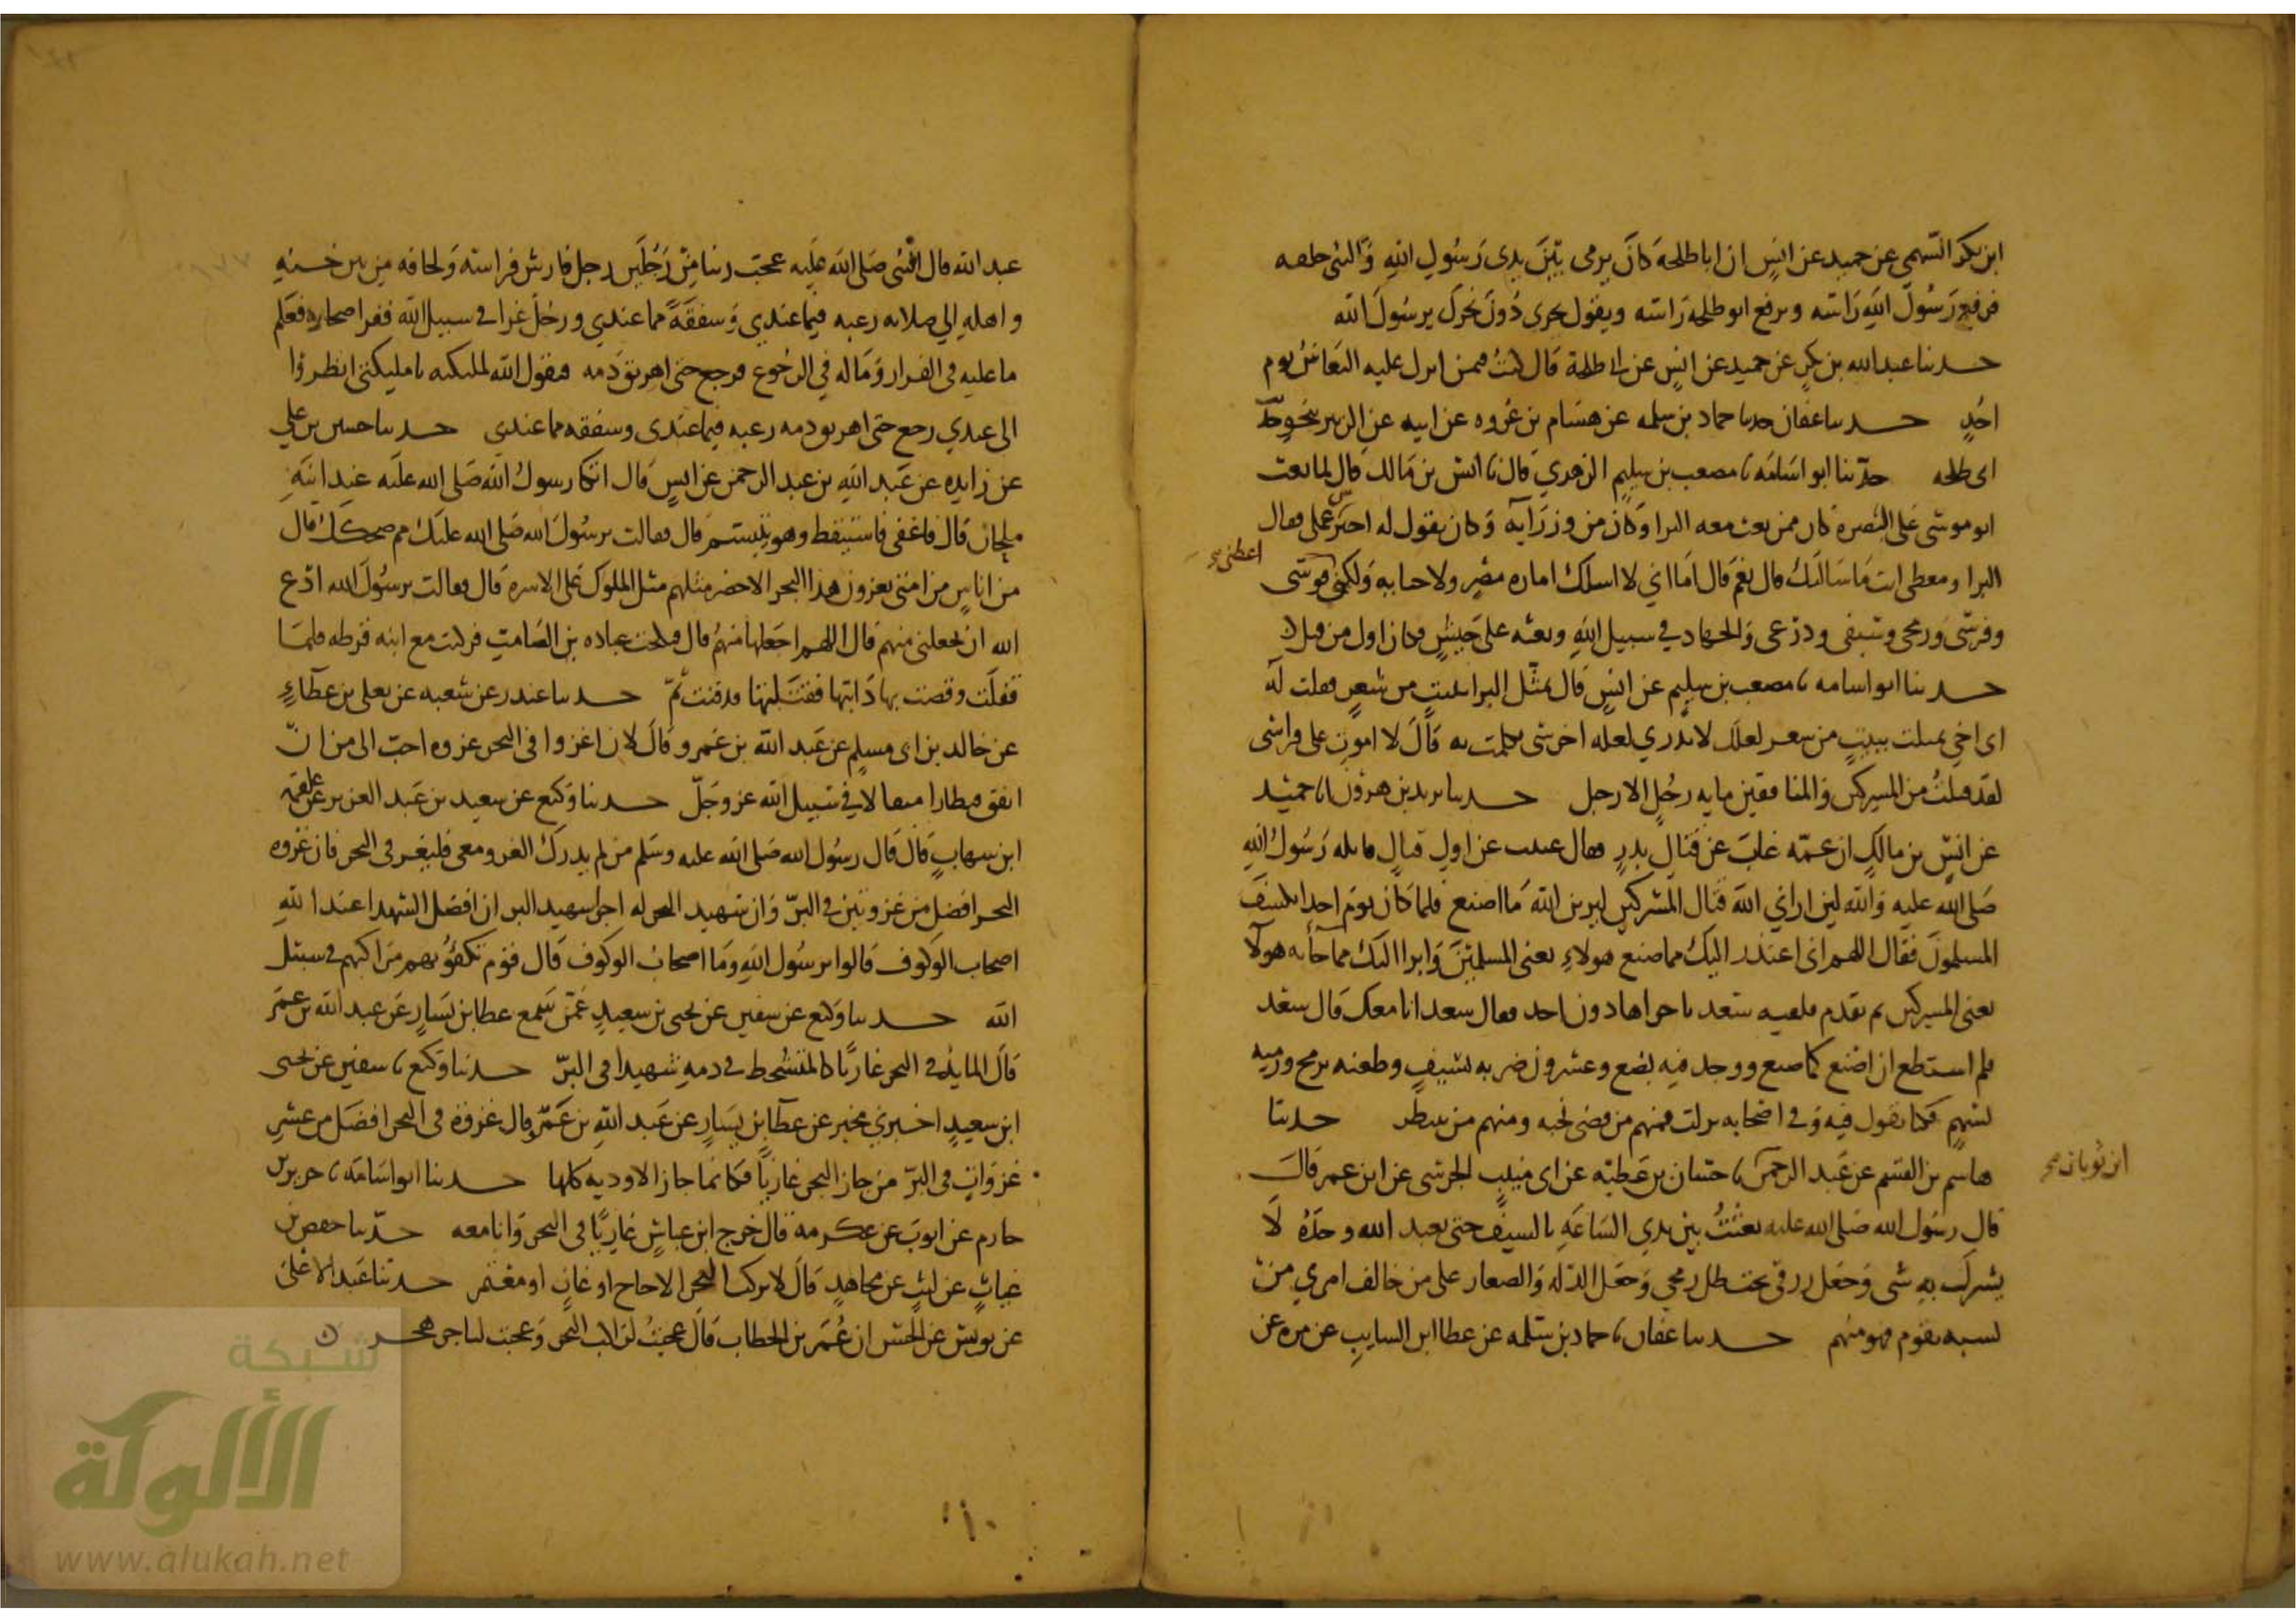 ابن بكر السهمي عن حميد عن انس ان ابا طلحة كان يرمى بين يدى رسول الله والنبى خلفه
فرفع رسول الله راسه ويرفع ابو طلحة راسه ويقول نحرى دون نحرك يرسول الله
حدثنا عبد الله بن بكر عن حميد عن انس عن ابى طلحة قال كنت فيمن انزل عليه النعاس يوم
احد حدثنا عفان حدثنا حماد بن سلمه عن هشام بن عروه عن ابيه عن الزبير بنحو حديث
ابى طلحه حدثنا ابو اسامه نا مصعب بن سليم الزهري قال نا انس بن مالك قال لما بعث
ابو موسى على البصره كان ممن بعث معه البرا وكان من وزرآيه وكان يقول له اختر عملى فقال
البرا ومعطى انت ما سالتك قال نعم قال اما اني لا اسلك اماره مصر ولا جبايه ولكن قوسى
اعطنى
وفرسى ورمحى وسيفى ودرعى والجهاد في سبيل الله وبعثه على جيش فكان اول من قتل
حدثنا ابو اسامه نا مصعب بن سليم عن انس قال تمثل البرا ببيت من شعر فقلت له
اى اخي تمثلت ببيت من شعر لعلك لا تدري لعله اخر شى تكلمت به قال لا اموت على فراشى
لقد قتلت من المشركين والمنافقين مايه رجل الا رجل حدثنا يزيد بن هرون انا حميد
عن انس بن مالك ان عمه غاب عن قتال بدر فقال غبت عن اول قتال قاتله رسول الله
صلى الله عليه والله لين اراني الله قتال المشركين ليرين الله ما اصنع فلما كان يوم احد انكشف
المسلمون فقال اللهم انى اعتذر اليك مما صنع هولاء يعنى المسلمين وابرا اليك مما جآ به هولا
يعنى المشركين ثم تقدم فلقيه سعد باخراها دون احد فقال سعد انا معك قال سعد
فلم استطع ان اصنع كما صنع ووجد فيه بضع وعشرون ضربه بسيف وطعنه برمح ورميه
بسهم فكنا نقول فيه وفي اصحابه نزلت فمنهم من قضى نحبه ومنهم من ينتظر حدثنا
هاشم بن القسم عن عبد الرحمن نا حسان بن عطيه عن ابى منيب الجرشى عن ابن عمر قال
ابن ثوبان صح
قال رسول الله صلى الله عليه بعثت بين يدي الساعه بالسيف حتى يعبد الله وحده لا
يشرك به شى وجعل رزقى تحت ظل رمحي وجعل الذله والصغار على من خالف امري من
تشبه بقوم فهو منهم حدثنا عفان نا حماد بن سلمه عن عطا ابن السايب عن مره عن
عبد الله قال النبى صلى الله عليه عجب ربنا من رجلين رجل ثار من فراشه ولحافه من بين
واهله الي صلاته رغبه فيما عندي وشفقة مما عندي ورجل غزا في سبيل الله ففر اصحابه فعلم
ما عليه في الفرار وماله في الرجوع فرجع حتى اهريق دمه فيقول الله لمليكته يا مليكتى انظروا
الى عبدي رجع حتى اهريق دمه رغبه فيما عندى وشفقه مما عندى حدثنا حسين بن علي
عن زايده عن عبد الله بن عبد الرحمن عن انس قال اتكا رسول الله صلى الله عليه عند ابنه
ملحان قال فاغفى فاستيقظ وهو يتبسم قال فقالت يرسول الله صلى الله عليك مم ضحكك قال
من اناس من امتى يغزون هذا البحر الاخضر مثلهم مثل الملوك على الاسره قال فقالت يرسول الله ادع
الله ان يجعلنى منهم قال اللهم اجعلها منهم قال فنكحت عباده بن الصامت فركبت مع ابنه قرظه فلما
قفلت وقصت بها دابتها فقتلتها فدفنت ثم حدثنا غندر عن شعبه عن يعلى بن عطآء
عن خالد بن ابى مسلم عن عبد الله بن عمرو قال لان اغزوا في البحر غزوه احب الى من ان
انفق قنطارا متقبلا في سبيل الله عز وجل حدثنا وكيع عن سعيد بن عبد العزيز عن علقمه
ابن شهاب قال قال رسول الله صلى الله عليه وسلم من لم يدرك الغزو معى فليغز فى البحر فان غزوه
البحر افضل من غزوتين في البر وان شهيد البحر له اجر شهيدى البر ان افضل الشهدا عند الله
اصحاب الوكوف قالوا يرسول الله وما اصحاب الوكوف قال قوم تكفؤ بهم مراكبهم في سبيل
الله حدثنا وكيع عن سفين عن يحيى بن سعيد عمن سمع عطا بن يسار عن عبد الله بن عمر
قال المايد في البحر غازيا كالمتشحط في دمه شهيدا في البر حدثنا وكيع نا سفين عن يحيى
ابن سعيد اخبرني مخبر عن عطا بن يسار عن عبد الله بن عمرو قال غزوة في البحر افضل من عشر
غزوات في البر من جاز البحر غازيا فكانما جاز الاوديه كلها حدثنا ابو اسامه نا جرير بن
حازم عن ايوب عن عكرمة قال خرج ابن عباس غازيا في البحر وانا معه حدثنا حفص بن
غياث عن ليث عن مجاهد قال لا يركب البحر الا حاج او غاز او معتمر حدثنا عبد الاعلى
عن يونس عن الحسن ان عمر بن الخطاب قال عجبت لراكب البحر وعجبت لتاجر هجر
شبكة
الألوكة
www.alukah.net